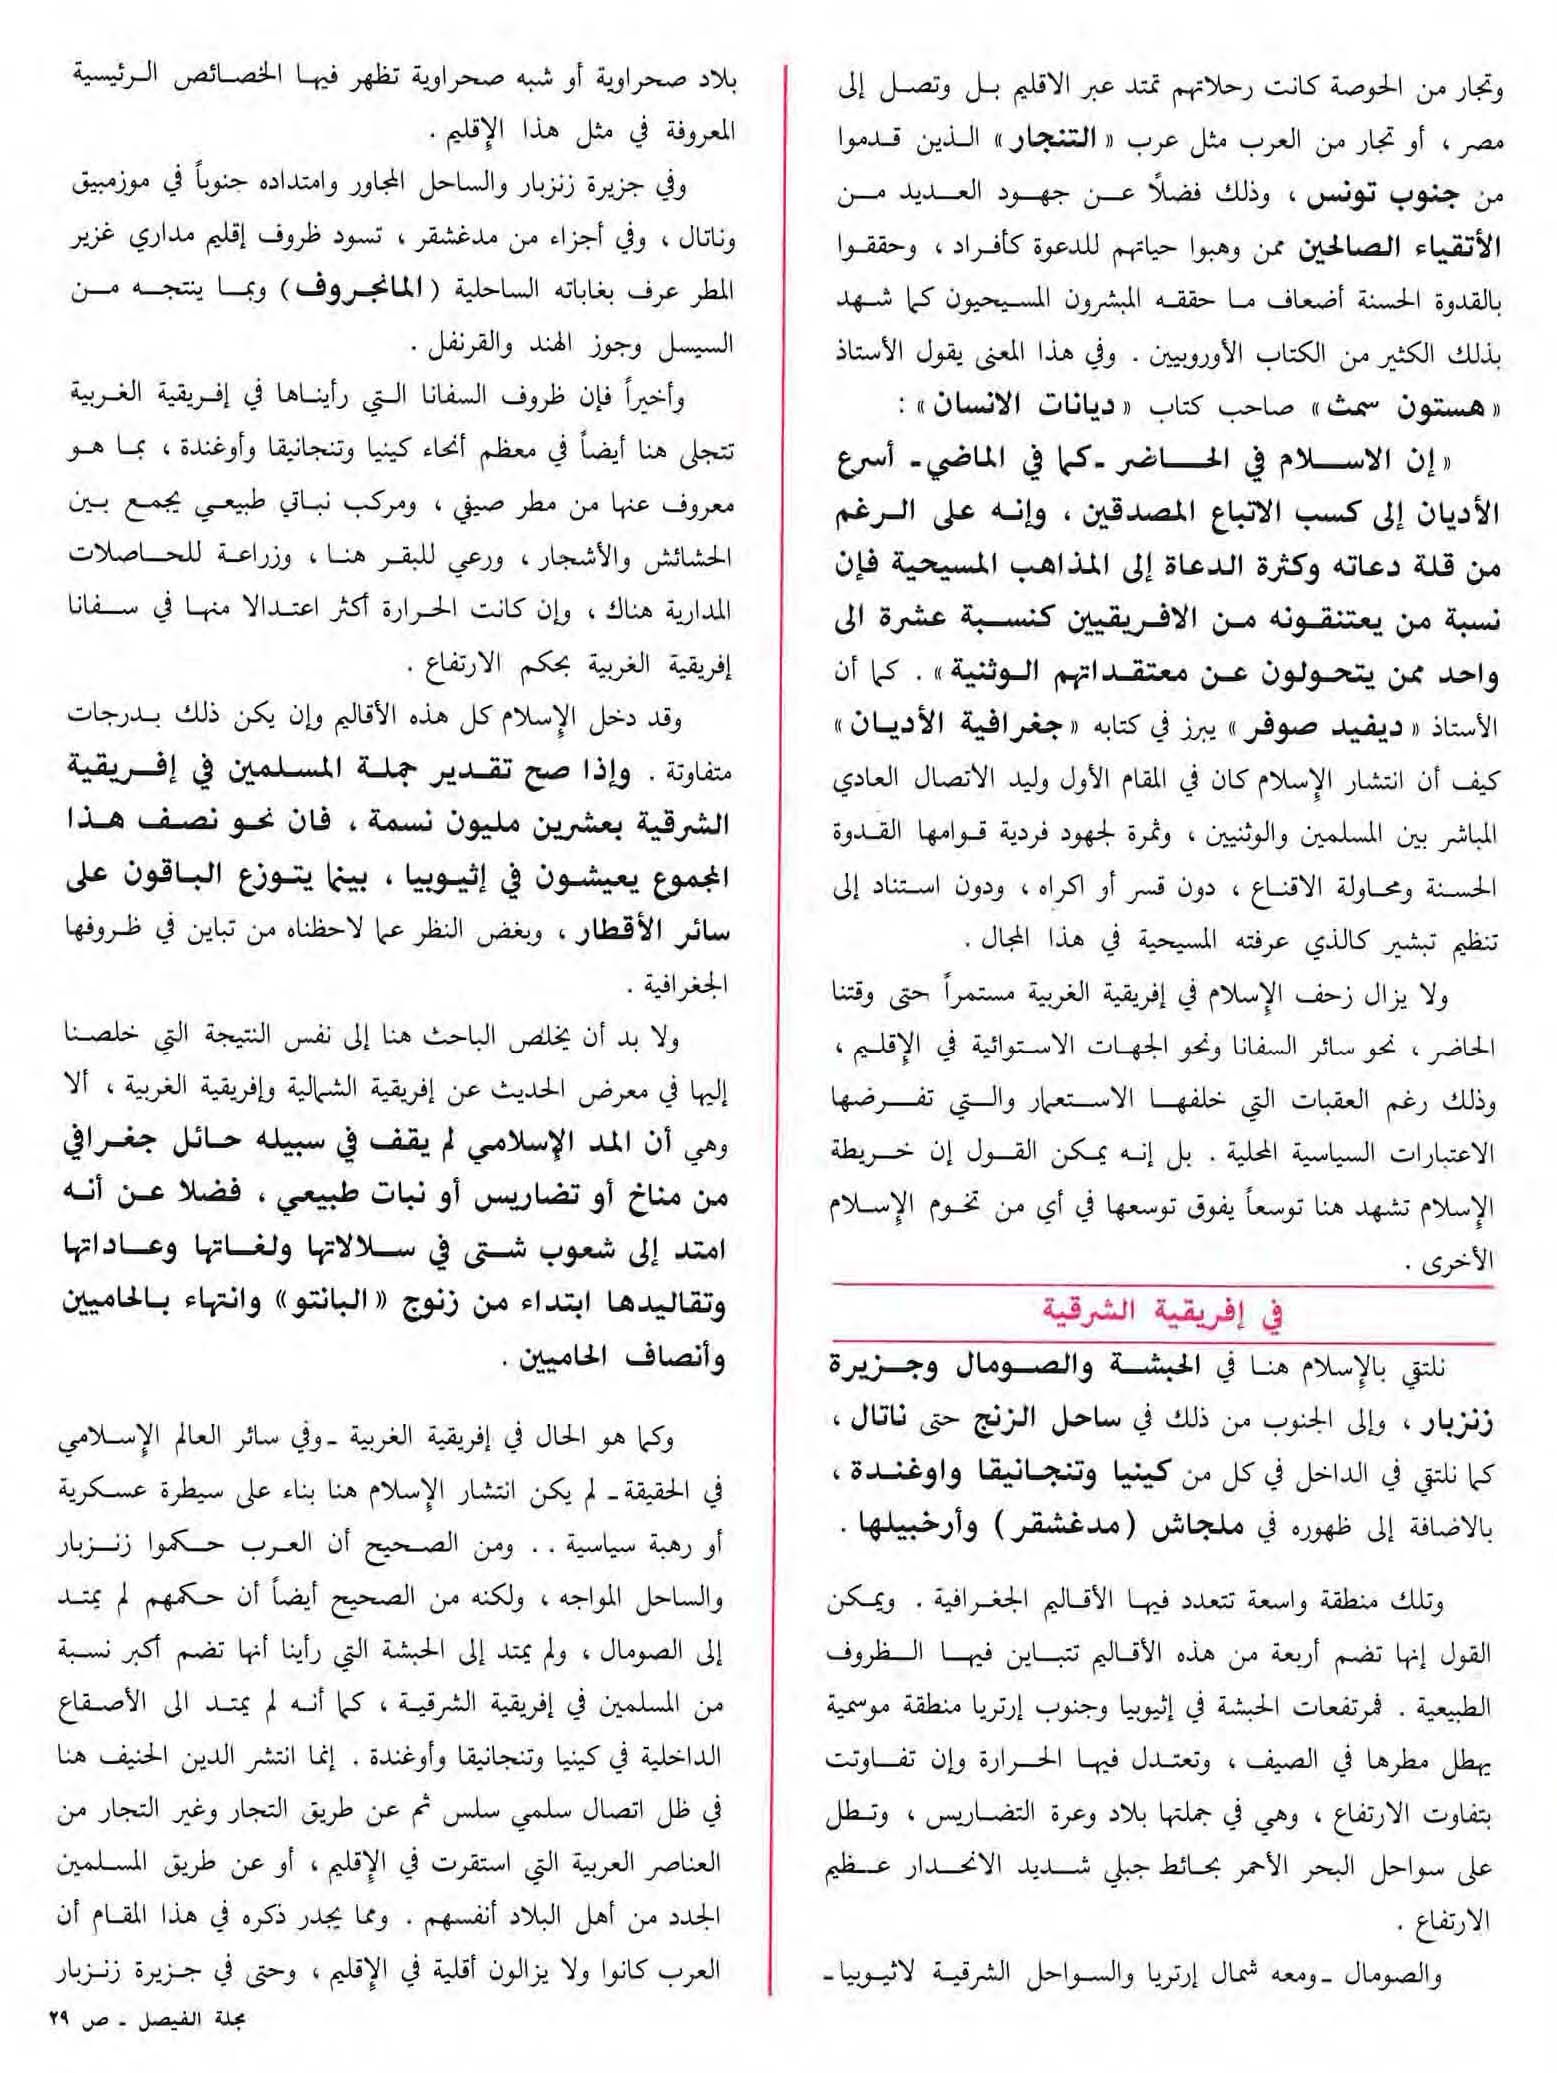 وتجار من الحوصة كانت رحلاتهم تمتد عبر الاقليم بل وتصل إلى
مصر ، أو تجار من العرب مثل عرب « التنجار » الذين قدموا
من جنوب تونس ، وذلك فضلاً عن جهود العديد من
الأتقياء الصالحين ممن وهبوا حياتهم للدعوة كأفراد ، وحققوا
بالقدوة الحسنة أضعاف ما حققه المبشرون المسيحيون كما شهد
بذلك الكثير من الكتاب الأوروبيين . وفي هذا المعنى يقول الأستاذ
« هستون سمث » صاحب كتاب « ديانات الانسان » :
« إن الاسلام في الحاضر ـ كما في الماضي ـ أسرع
الأديان إلى كسب الاتباع المصدقين ، وإنه على الرغم
من قلة دعاته وكثرة الدعاة إلى المذاهب المسيحية فإن
نسبة من يعتنقونه من الافريقيين كنسبة عشرة الى
واحد ممن يتحولون عن معتقداتهم الوثنية » . كما أن
الأستاذ « ديفيد صوفر » يبرز في كتابه « جغرافية الأديان »
كيف أن انتشار الإسلام كان في المقام الأول وليد الاتصال العادي
المباشر بين المسلمين والوثنيين ، وثمرة لجهود فردية قوامها القدوة
الحسنة ومحاولة الاقناع ، دون قسر أو اكراه ، ودون استناد إلى
تنظيم تبشير كالذي عرفته المسيحية في هذا المجال .
ولا يزال زحف الإسلام في إفريقية الغربية مستمراً حتى وقتنا
الحاضر ، نحو سائر السفانا ونحو الجهات الاستوائية في الإقليم ،
وذلك رغم العقبات التي خلفها الاستعمار والتي تفرضها
الاعتبارات السياسية المحلية . بل إنه يمكن القول إن خريطة
الإسلام تشهد هنا توسعاً يفوق توسعها في أي من تخوم الإسلام
الأخرى .
في إفريقية الشرقية
نلتقي بالإسلام هنا في الحبشة والصومال وجزيرة
زنزبار ، وإلى الجنوب من ذلك في ساحل الزنج حتى ناتال ،
كما نلتقي في الداخل في كل من كينيا وتنجانيقا واوغندة ،
بالاضافة إلى ظهوره في ملجاش ( مدغشقر ) وأرخبيلها .
وتلك منطقة واسعة تتعدد فيها الأقاليم الجغرافية . ويمكن
القول إنها تضم أربعة من هذه الأقاليم تتباين فيها الظروف
الطبيعية . فمرتفعات الحبشة في إثيوبيا وجنوب إرتريا منطقة موسمية
يهطل مطرها في الصيف ، وتعتدل فيها الحرارة وإن تفاوتت
بتفاوت الارتفاع ، وهي في جملتها بلاد وعرة التضاريس ، وتطل
على سواحل البحر الأحمر بحائط جبلي شديد الانحدار عظيم
الارتفاع .
والصومال ـ ومعه شمال إرتريا والسواحل الشرقية لاثيوبيا ـ
بلاد صحراوية أو شبه صحراوية تظهر فيها الخصائص الرئيسية
المعروفة في مثل هذا الإقليم .
وفي جزيرة زنزبار والساحل المجاور وامتداده جنوباً في موزمبيق
وناتال ، وفي أجزاء من مدغشقر ، تسود ظروف إقليم مداري غزير
المطر عرف بغاباته الساحلية ( المانجروف ) وبما ينتجه من
السيسل وجوز الهند والقرنفل .
وأخيراً فإن ظروف السفانا التي رأيناها في إفريقية الغربية
تتجلى هنا أيضاً في معظم أنحاء كينيا وتنجانيقا وأوغندة ، بما هو
معروف عنها من مطر صيفي ، ومركب نباتي طبيعي يجمع بين
الحشائش والأشجار ، ورعي للبقر هنا ، وزراعة للحاصلات
المدارية هناك ، وإن كانت الحرارة أكثر اعتدالا منها في سفانا
إفريقية الغربية بحكم الارتفاع .
وقد دخل الإسلام كل هذه الأقاليم وإن يكن ذلك بدرجات
متفاوتة . وإذا صح تقدير جملة المسلمين في إفريقية
الشرقية بعشرين مليون نسمة ، فان نحو نصف هذا
المجموع يعيشون في إثيوبيا ، بينما يتوزع الباقون على
سائر الأقطار ، وبغض النظر عما لاحظناه من تباين في ظروفها
الجغرافية .
ولا بد أن يخلص الباحث هنا إلى نفس النتيجة التي خلصنا
إليها في معرض الحديث عن إفريقية الشمالية وإفريقية الغربية ، ألا
وهي أن المد الإسلامي لم يقف في سبيله حائل جغرافي
من مناخ أو تضاريس أو نبات طبيعي ، فضلا عن أنه
امتد إلى شعوب شتى في سلالاتها ولغاتها وعاداتها
وتقاليدها ابتداء من زنوج « البانتو » وانتهاء بالحاميين
وأنصاف الحاميين .
وكما هو الحال في إفريقية الغربية ـ وفي سائر العالم الإسلامي
في الحقيقة ـ لم يكن انتشار الإسلام هنا بناء على سيطرة عسكرية
أو رهبة سياسية .. ومن الصحيح أن العرب حكموا زنزبار
والساحل المواجه ، ولكنه من الصحيح أيضاً أن حكمهم لم يمتد
إلى الصومال ، ولم يمتد إلى الحبشة التي رأينا أنها تضم أكبر نسبة
من المسلمين في إفريقية الشرقية ، كما أنه لم يمتد الى الأصقاع
الداخلية في كينيا وتنجانيقا وأوغندة . إنما انتشر الدين الحنيف هنا
في ظل اتصال سلمي سلس ثم عن طريق التجار وغير التجار من
العناصر العربية التي استقرت في الإقليم ، أو عن طريق المسلمين
الجدد من أهل البلاد أنفسهم . ومما يجدر ذكره في هذا المقام أن
العرب كانوا ولا يزالون أقلية في الإقليم ، وحتى في جزيرة زنزبار
مجلة الفيصل ـ ص ٢٩